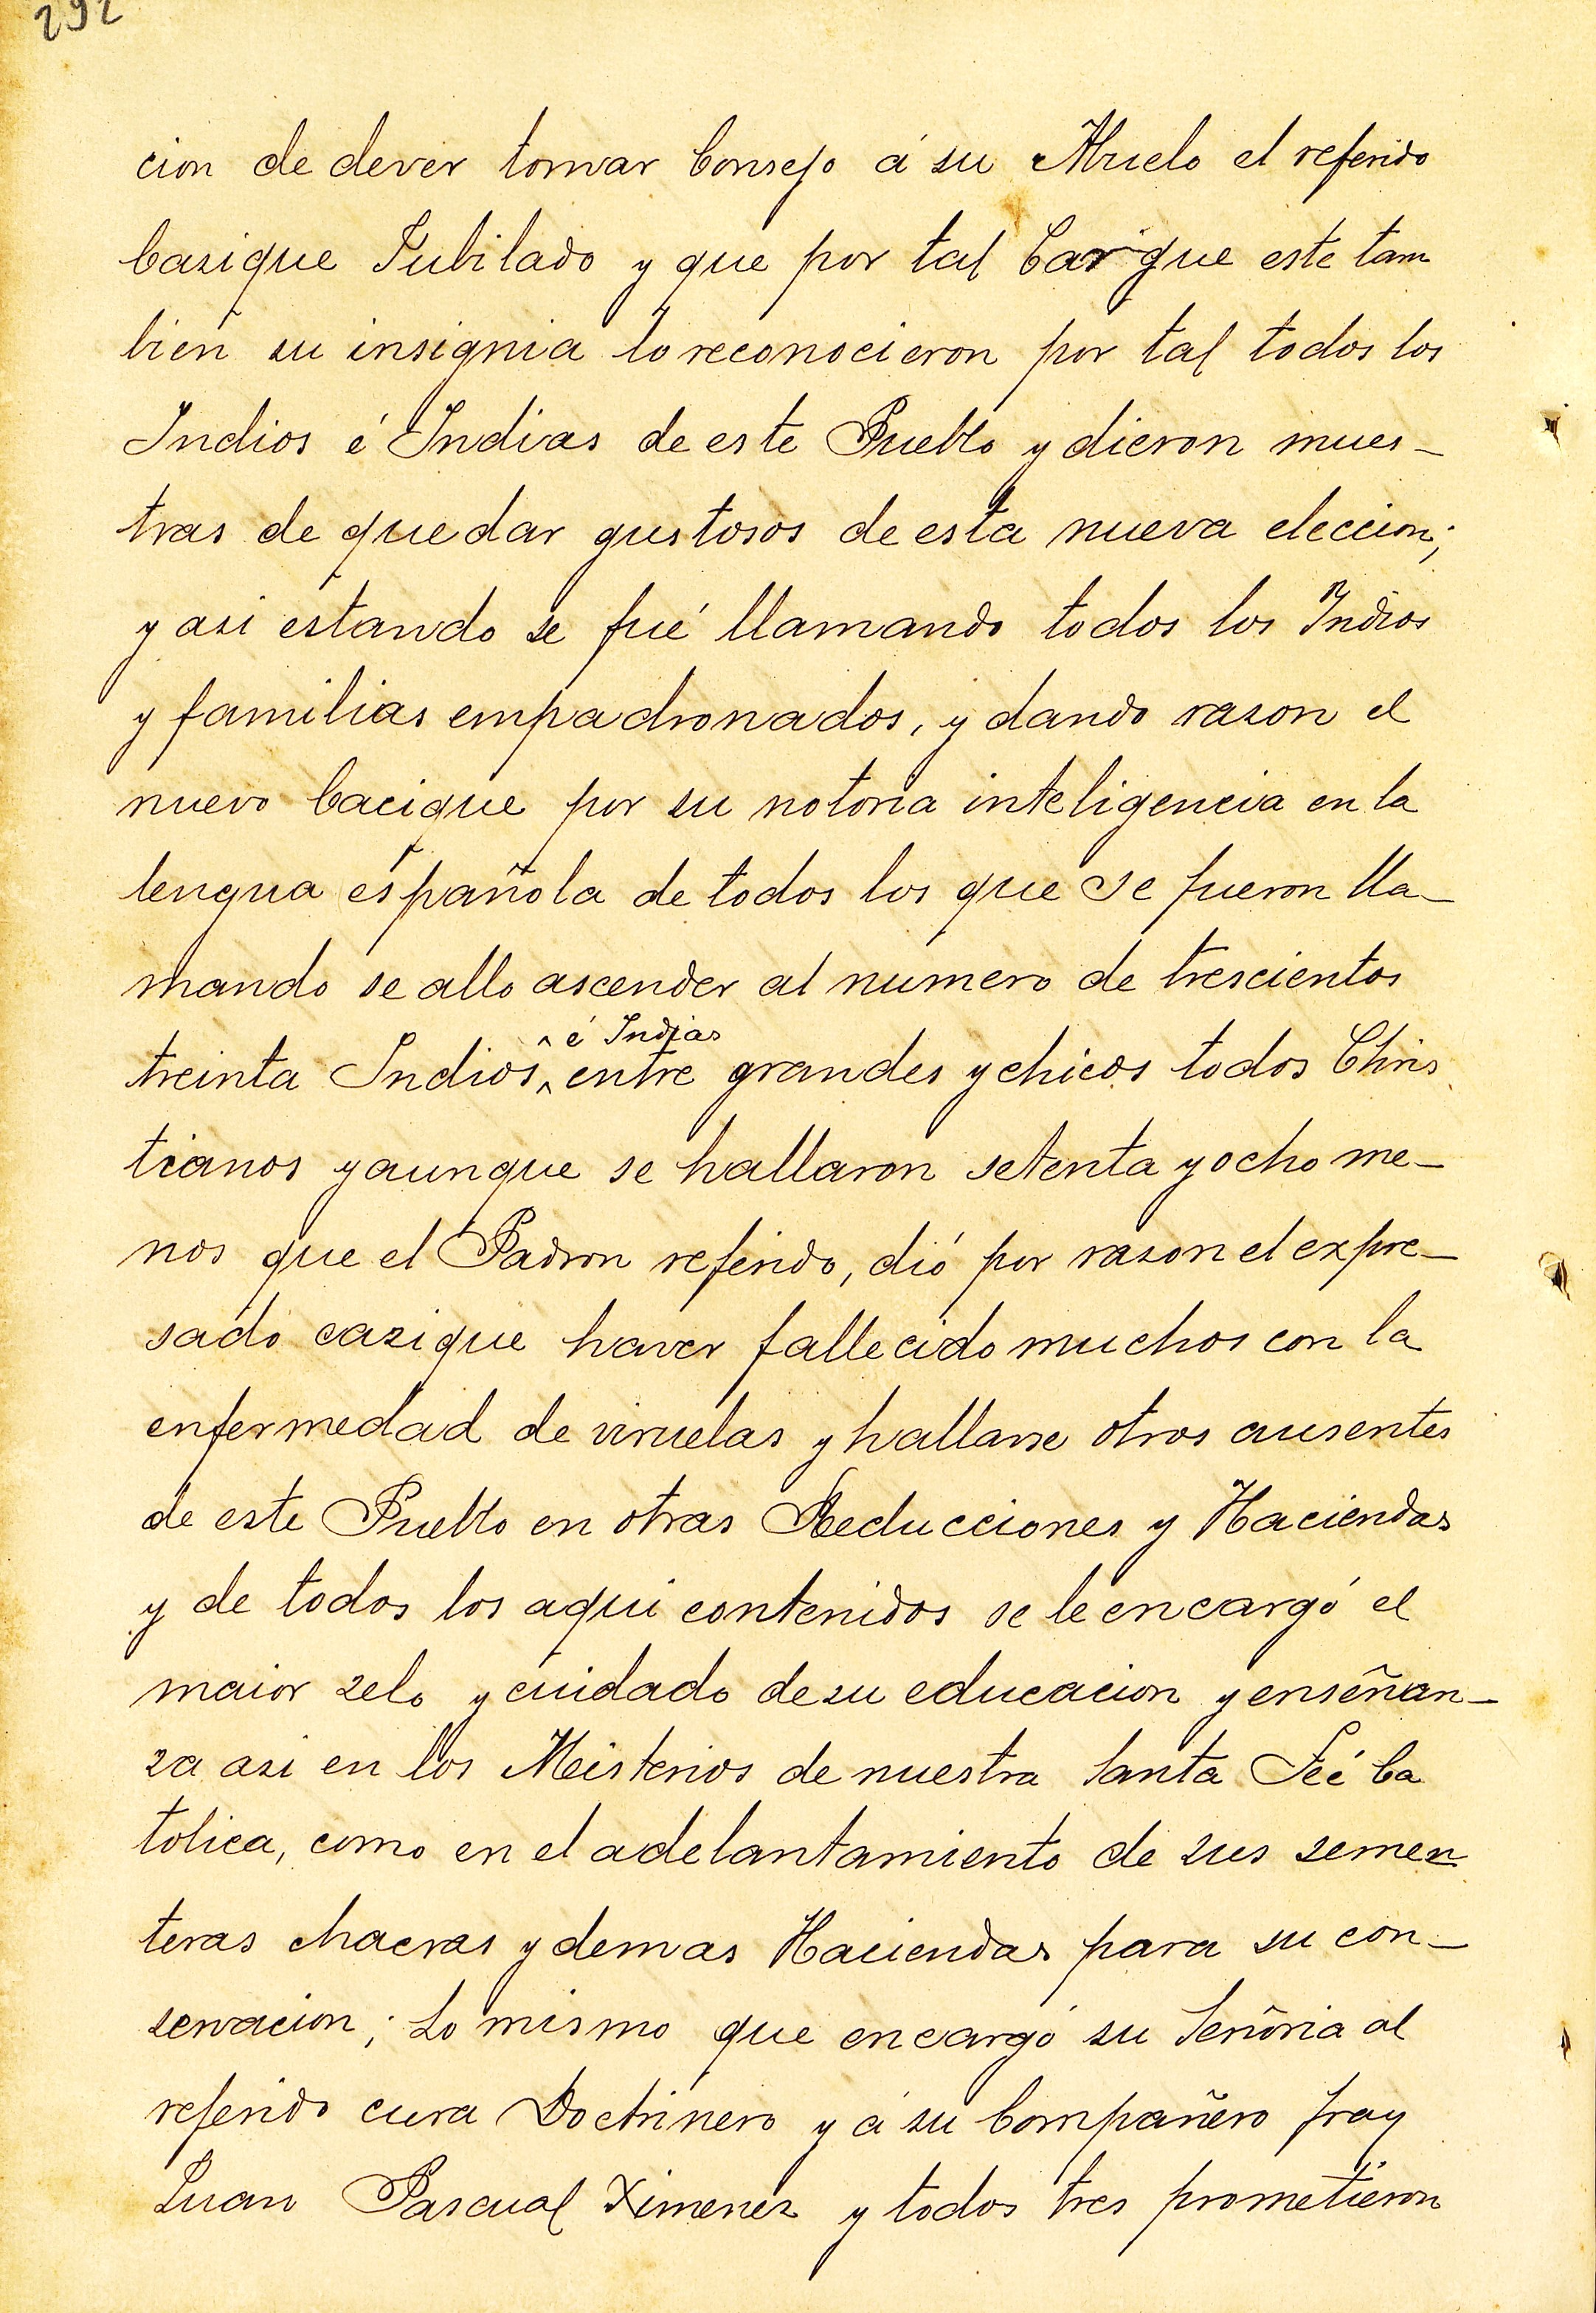 292
cion de dever tomar Consejo á su Abuelo el referido
Casique Jubilado y que por tal Carigue este tam
bien su insignia lo reconocieron por tal todos los
Indios é Indias de este Pueblo y dieron mues-
tras de quedar gustosos de esta nueva eleccion;
y asi estando se fué llamando todos los Indios
y familias empadronados, y dando rason el
nuevo Cacique por su notoria inteligencia en la
lengua española de todos los que se fueron lla-
mando se allo ascender al numero de trescientos
treinta Indios, ^ é Indias entre grandes y chicos todos Chris
tianos y aunque se hallaron setenta y ocho me-
nos que el Padron referido, dió por rason el expre-
sado casique haver fallecido muchos con la
enfermedad de viruelas y hallarse otros ausentes
de este Pueblo en otras Reducciones y Haciendas
y de todos los aqui contenidos se le encargó el
maior zelo y cuidado de su educacion y enseñan-
za asi en los Meisterios de nuestra Santa Feé Ca
tolica, como en el adelantamiento de sus semen
teras chacras y demas Haciendas para su con-
servacion; Lo mismo que encargó su Señoria al
referido cura Doctrinero y á su Compañero fray
Juan Pascual Ximenez y todos tres prometieron